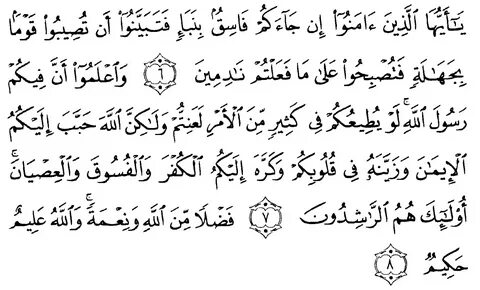 يَـٰٓأَيُّهَا ٱلَّذِينَ ءَامَنُوٓا۟ إِن جَآءَكُمْ فَاسِقٌۢ بِنَبَإٍ فَتَبَيَّنُوٓا۟ أَن تُصِيبُوا۟ قَوْمًۢا
بِجَهَـٰلَةٍ فَتُصْبِحُوا۟ عَلَىٰ مَا فَعَلْتُمْ نَـٰدِمِينَ ٦ وَٱعْلَمُوٓا۟ أَنَّ فِيكُمْ
رَسُولَ ٱللَّهِ ۚ لَوْ يُطِيعُكُمْ فِى كَثِيرٍ مِّنَ ٱلْأَمْرِ لَعَنِتُّمْ وَلَـٰكِنَّ ٱللَّهَ حَبَّبَ إِلَيْكُمُ
ٱلْإِيمَـٰنَ وَزَيَّنَهُۥ فِى قُلُوبِكُمْ وَكَرَّهَ إِلَيْكُمُ ٱلْكُفْرَ وَٱلْفُسُوقَ وَٱلْعِصْيَانَ ۚ
أُو۟لَـٰٓئِكَ هُمُ ٱلرَّٰشِدُونَ ٧ فَضْلًا مِّنَ ٱللَّهِ وَنِعْمَةً ۚ وَٱللَّهُ عَلِيمٌ
حَكِيمٌ ٨